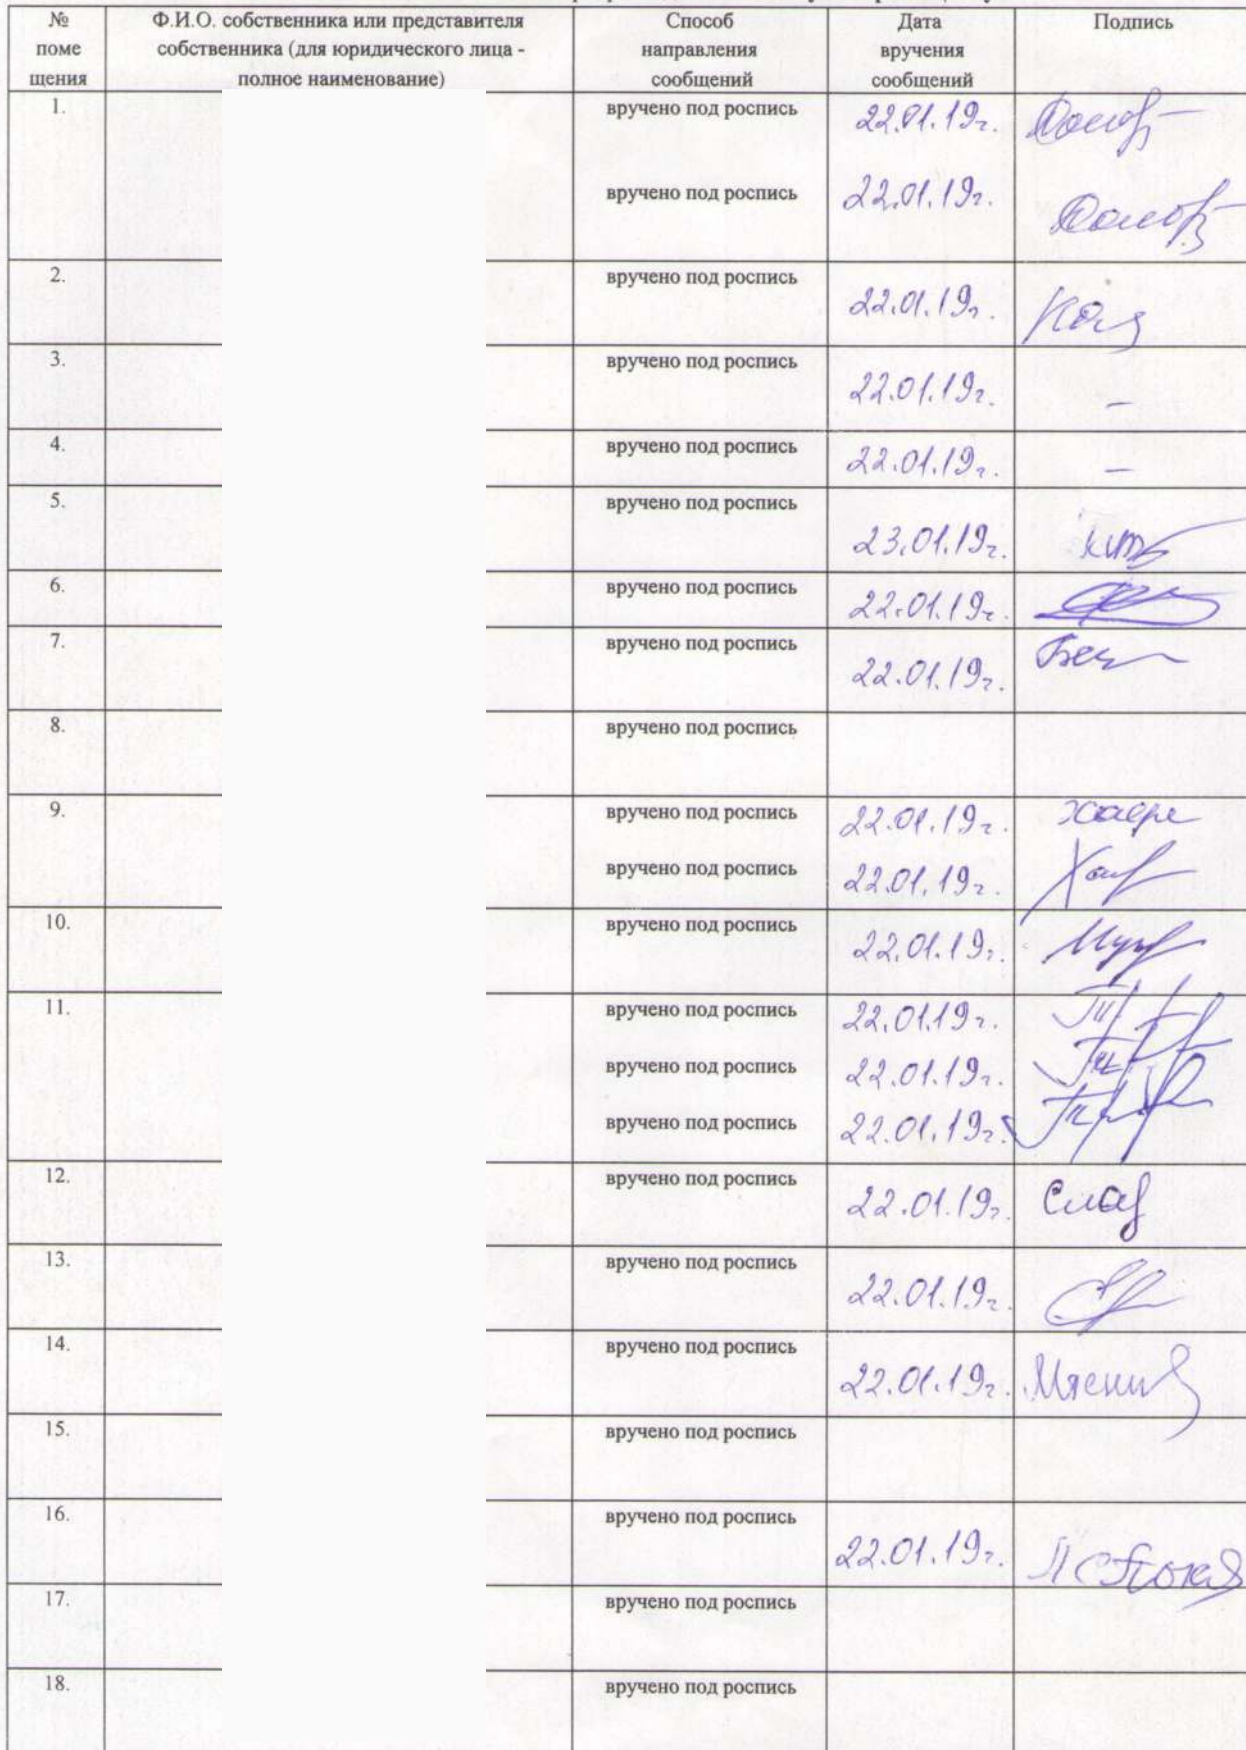 № Ф.И.О. собственника или представителя Способ Дата Подпись
поме собственника (для юридического лица - направления вручения
щения полное наименование) сообщений сообщений
1. вручено под роспись 22.01.19г.
вручено под роспись 22.01.19г.
2. вручено под роспись
22.01.19г.
3. вручено под роспись
22.01.19г. –
4. вручено под роспись
22.01.19г. –
5. вручено под роспись
23.01.19г.
6. вручено под роспись
22.01.19г.
7. вручено под роспись
22.01.19г.
8. вручено под роспись
9. вручено под роспись 22.01.19г.
вручено под роспись 22.01.19г.
10. вручено под роспись
22.01.19г.
11. вручено под роспись 22.01.19г.
вручено под роспись 22.01.19г.
вручено под роспись 22.01.19г.
12. вручено под роспись
22.01.19г.
13. вручено под роспись
22.01.19г.
14. вручено под роспись
22.01.19г.
15. вручено под роспись
16. вручено под роспись
22.01.19г.
17. вручено под роспись
18. вручено под роспись